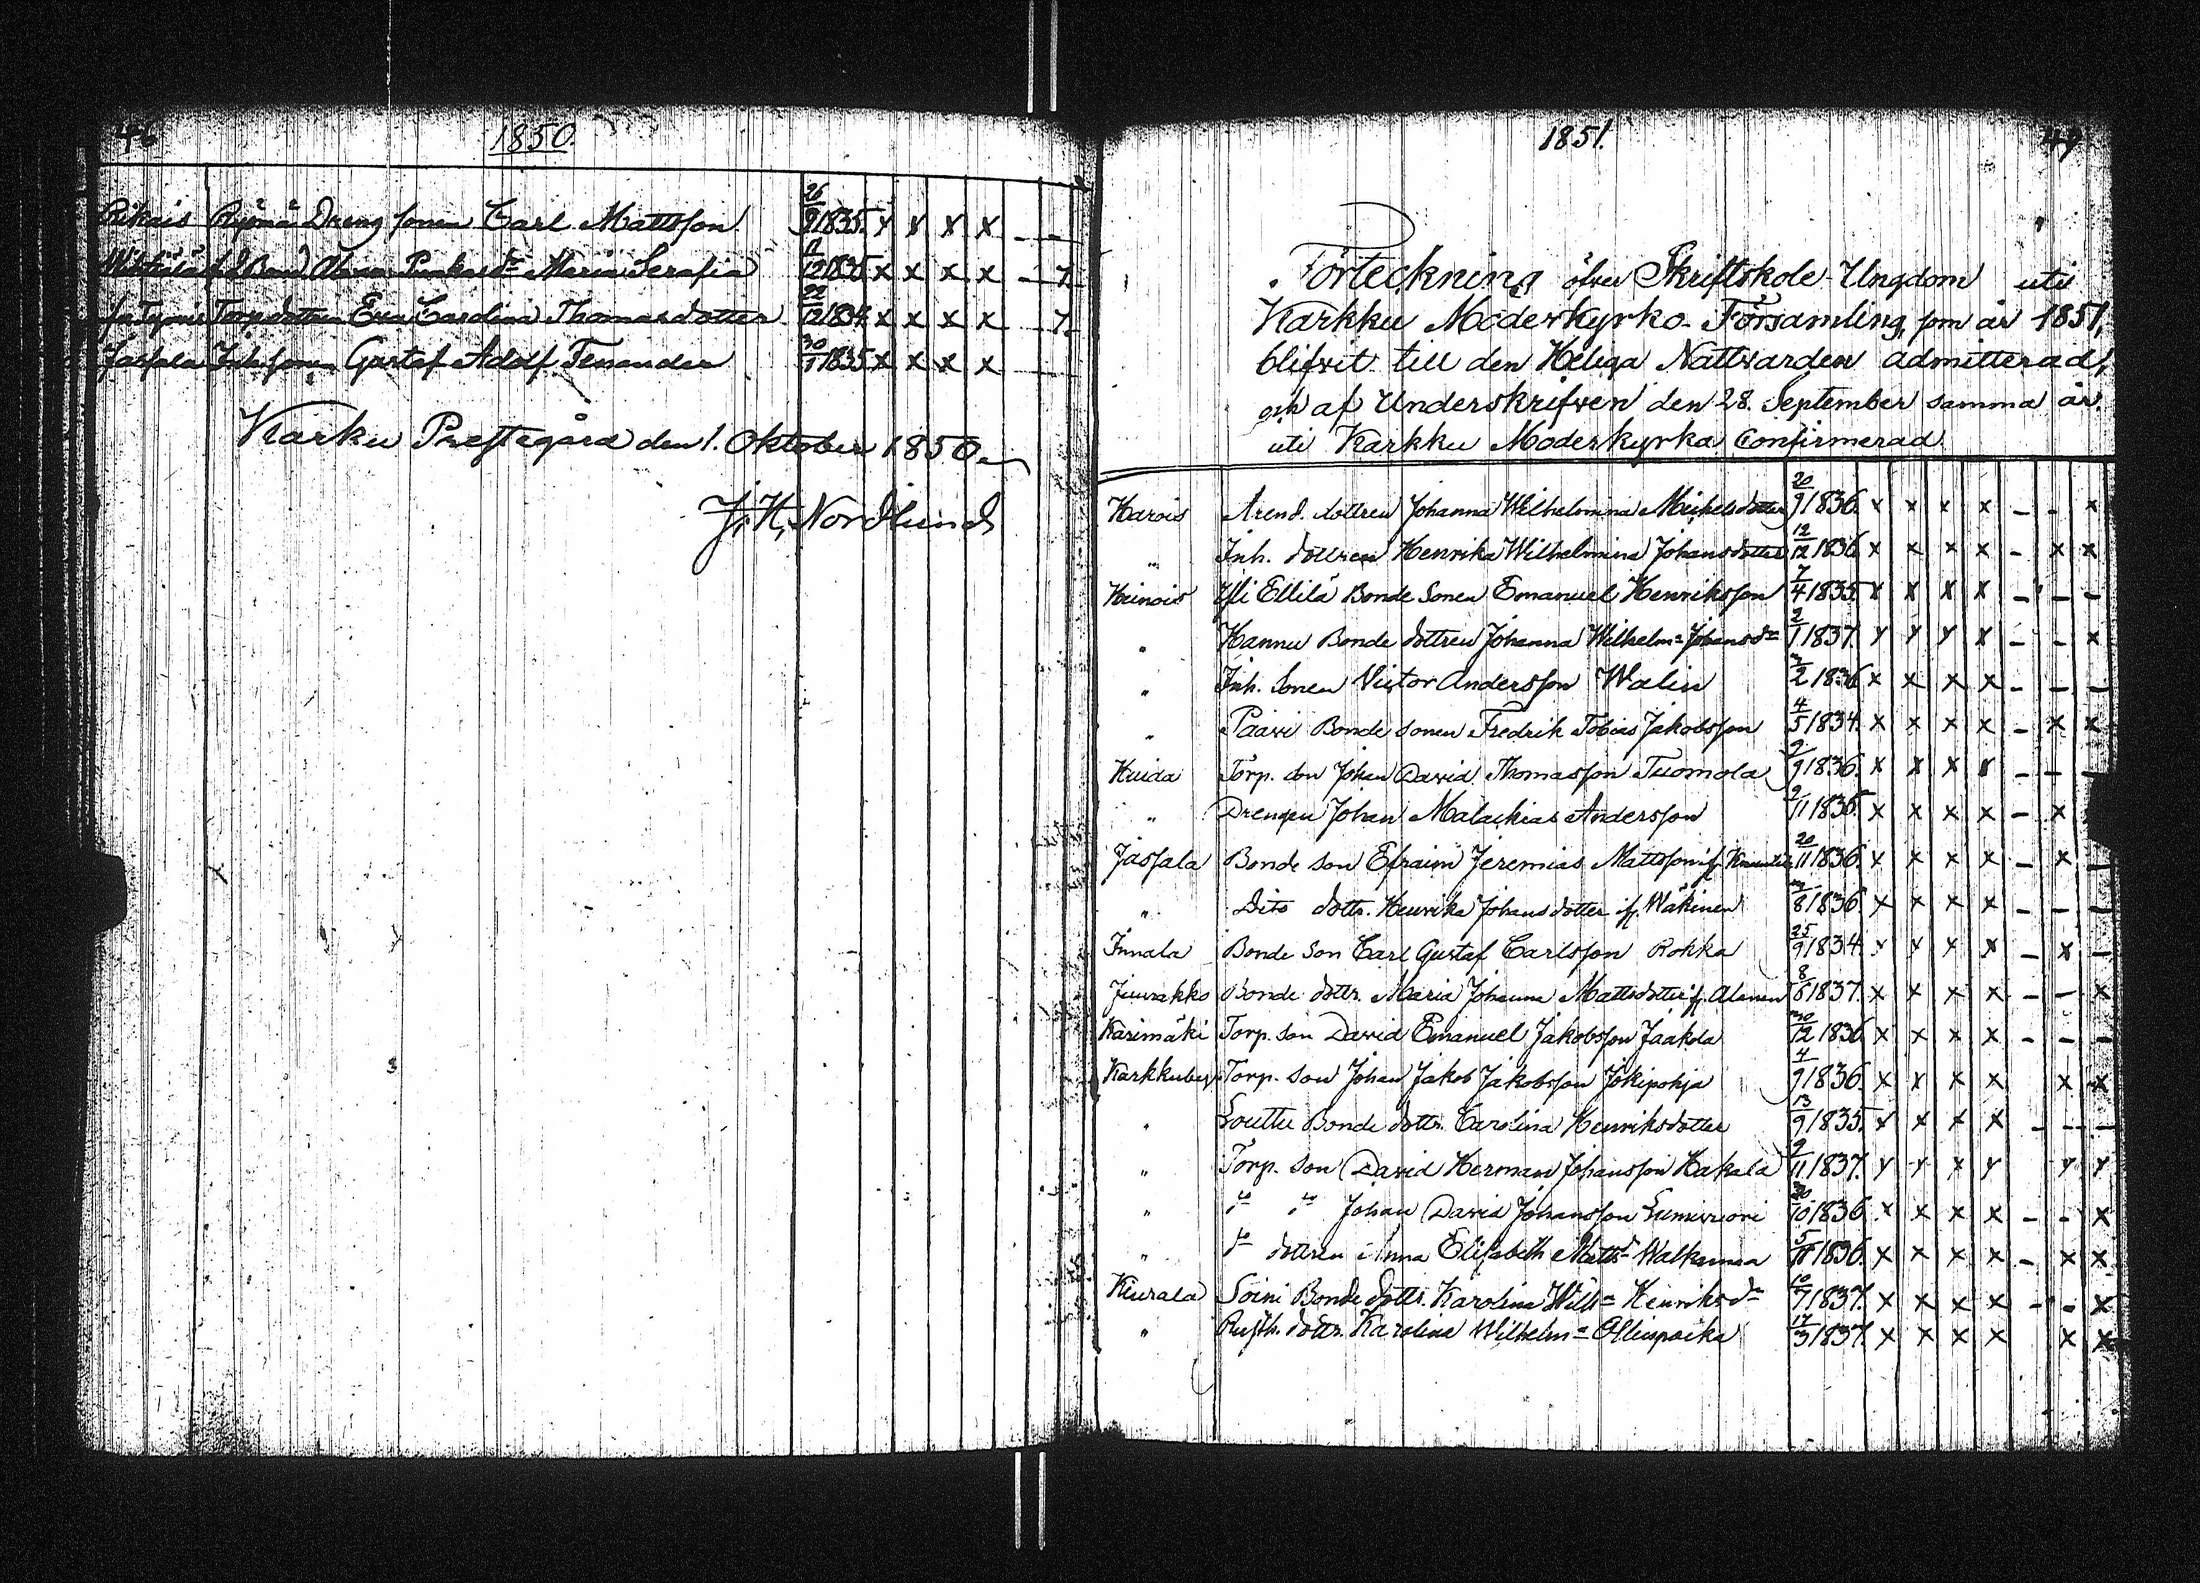 1850.
Dreng sonen Carl Mattsson 26/9 1835. x x x x - -
Maria Serafia 12 1835 x x x x - 7.
Torp dottren Eva Carolina Thomasdotter 22/12 1834 x x x x - 7.
Jaskala Inh sonen Gustaf Adolf Tenander 30/1 1835 x x x x
Karku Prestegård den 1. Oktober 1850.
J. H. Nordlund
1851.
49
Förteckning öfver Skriftskole-Ungdom uti
Karkku Moderkyrko-Församling, som år 1851,
blifvit till den Heliga Nattvarden admitterad,
och af Underskrifven den 28. September samma år.
uti Karkku Moderkyrka Confirmerad.
Karois Arend. dottren Johanna Wilhelmina Mickelsdotter 20/9 1836. x x x x - - x
" Inh. dottren Henrika Wilhelmina Johansdotter 12/12 1836 x x x x - x x
Heinois Yli Ellilä Bonde Sonen Emanuel Henriksson 7/4 1835 x x x x - - -
" Hannu Bonde dottren Johanna Wilhelm= Johansdr 2/1 1837. x x x x - - x
" Inh. Sonen Victor Andersson Walin /2 1836 x x x x - - -
" Paavi Bonde sonen Fredrik Tobias Jakobsson 4/5 1834. x x x x - x x
Kuida Torp. son Johan David Thomasson Tuomola 9/9 1836. x x x x - - -
" Drengen Johan Malachias Andersson 9/11 1836. x x x x - x
Jassala Bonde son Efraim Jeremias Mattsson if. 20/11 1836. x x x x - x -
" Dito dottr. Henrika Johansdotter if. Wäkinen /8 1836 x x x x - - -
Innala Bonde Son Carl Gustaf Carlsson Rokka 25/9 1834 x x x x - x -
Juurakko Bonde dottr. Maria Johanna Mattsdotter if. Alanen 8/6 1837. x x x x - - x
Karimäki Torp. son David Emanuel Jakobsson Jaakola /12 1836 x x x x - - -
Karkkuby Torp. Son Johan Jakob Jakobsson Jokipohja 4/9 1836. x x x x x x
" Louttu Bonde dottr. Carolina Henriksdotter 13/9 1835 x x x x - - -
" Torp. Son David Herman Johansson Hakala 9/11 1837. x x x x x x
" do do Johan David Johansson 30/10 1836 x x x x - - x
" do dottren Anna Elisabeth Mattsdr 5/11 1836 x x x x - x x
Kiurala Soini Bonde dottr. Karolina Wilh= Henriksdr 10/7 1837. x x x x - - x
" Rusth. dottr. Karolina Wilhelm= Ollinpoika 17/3 1837. x x x x x x